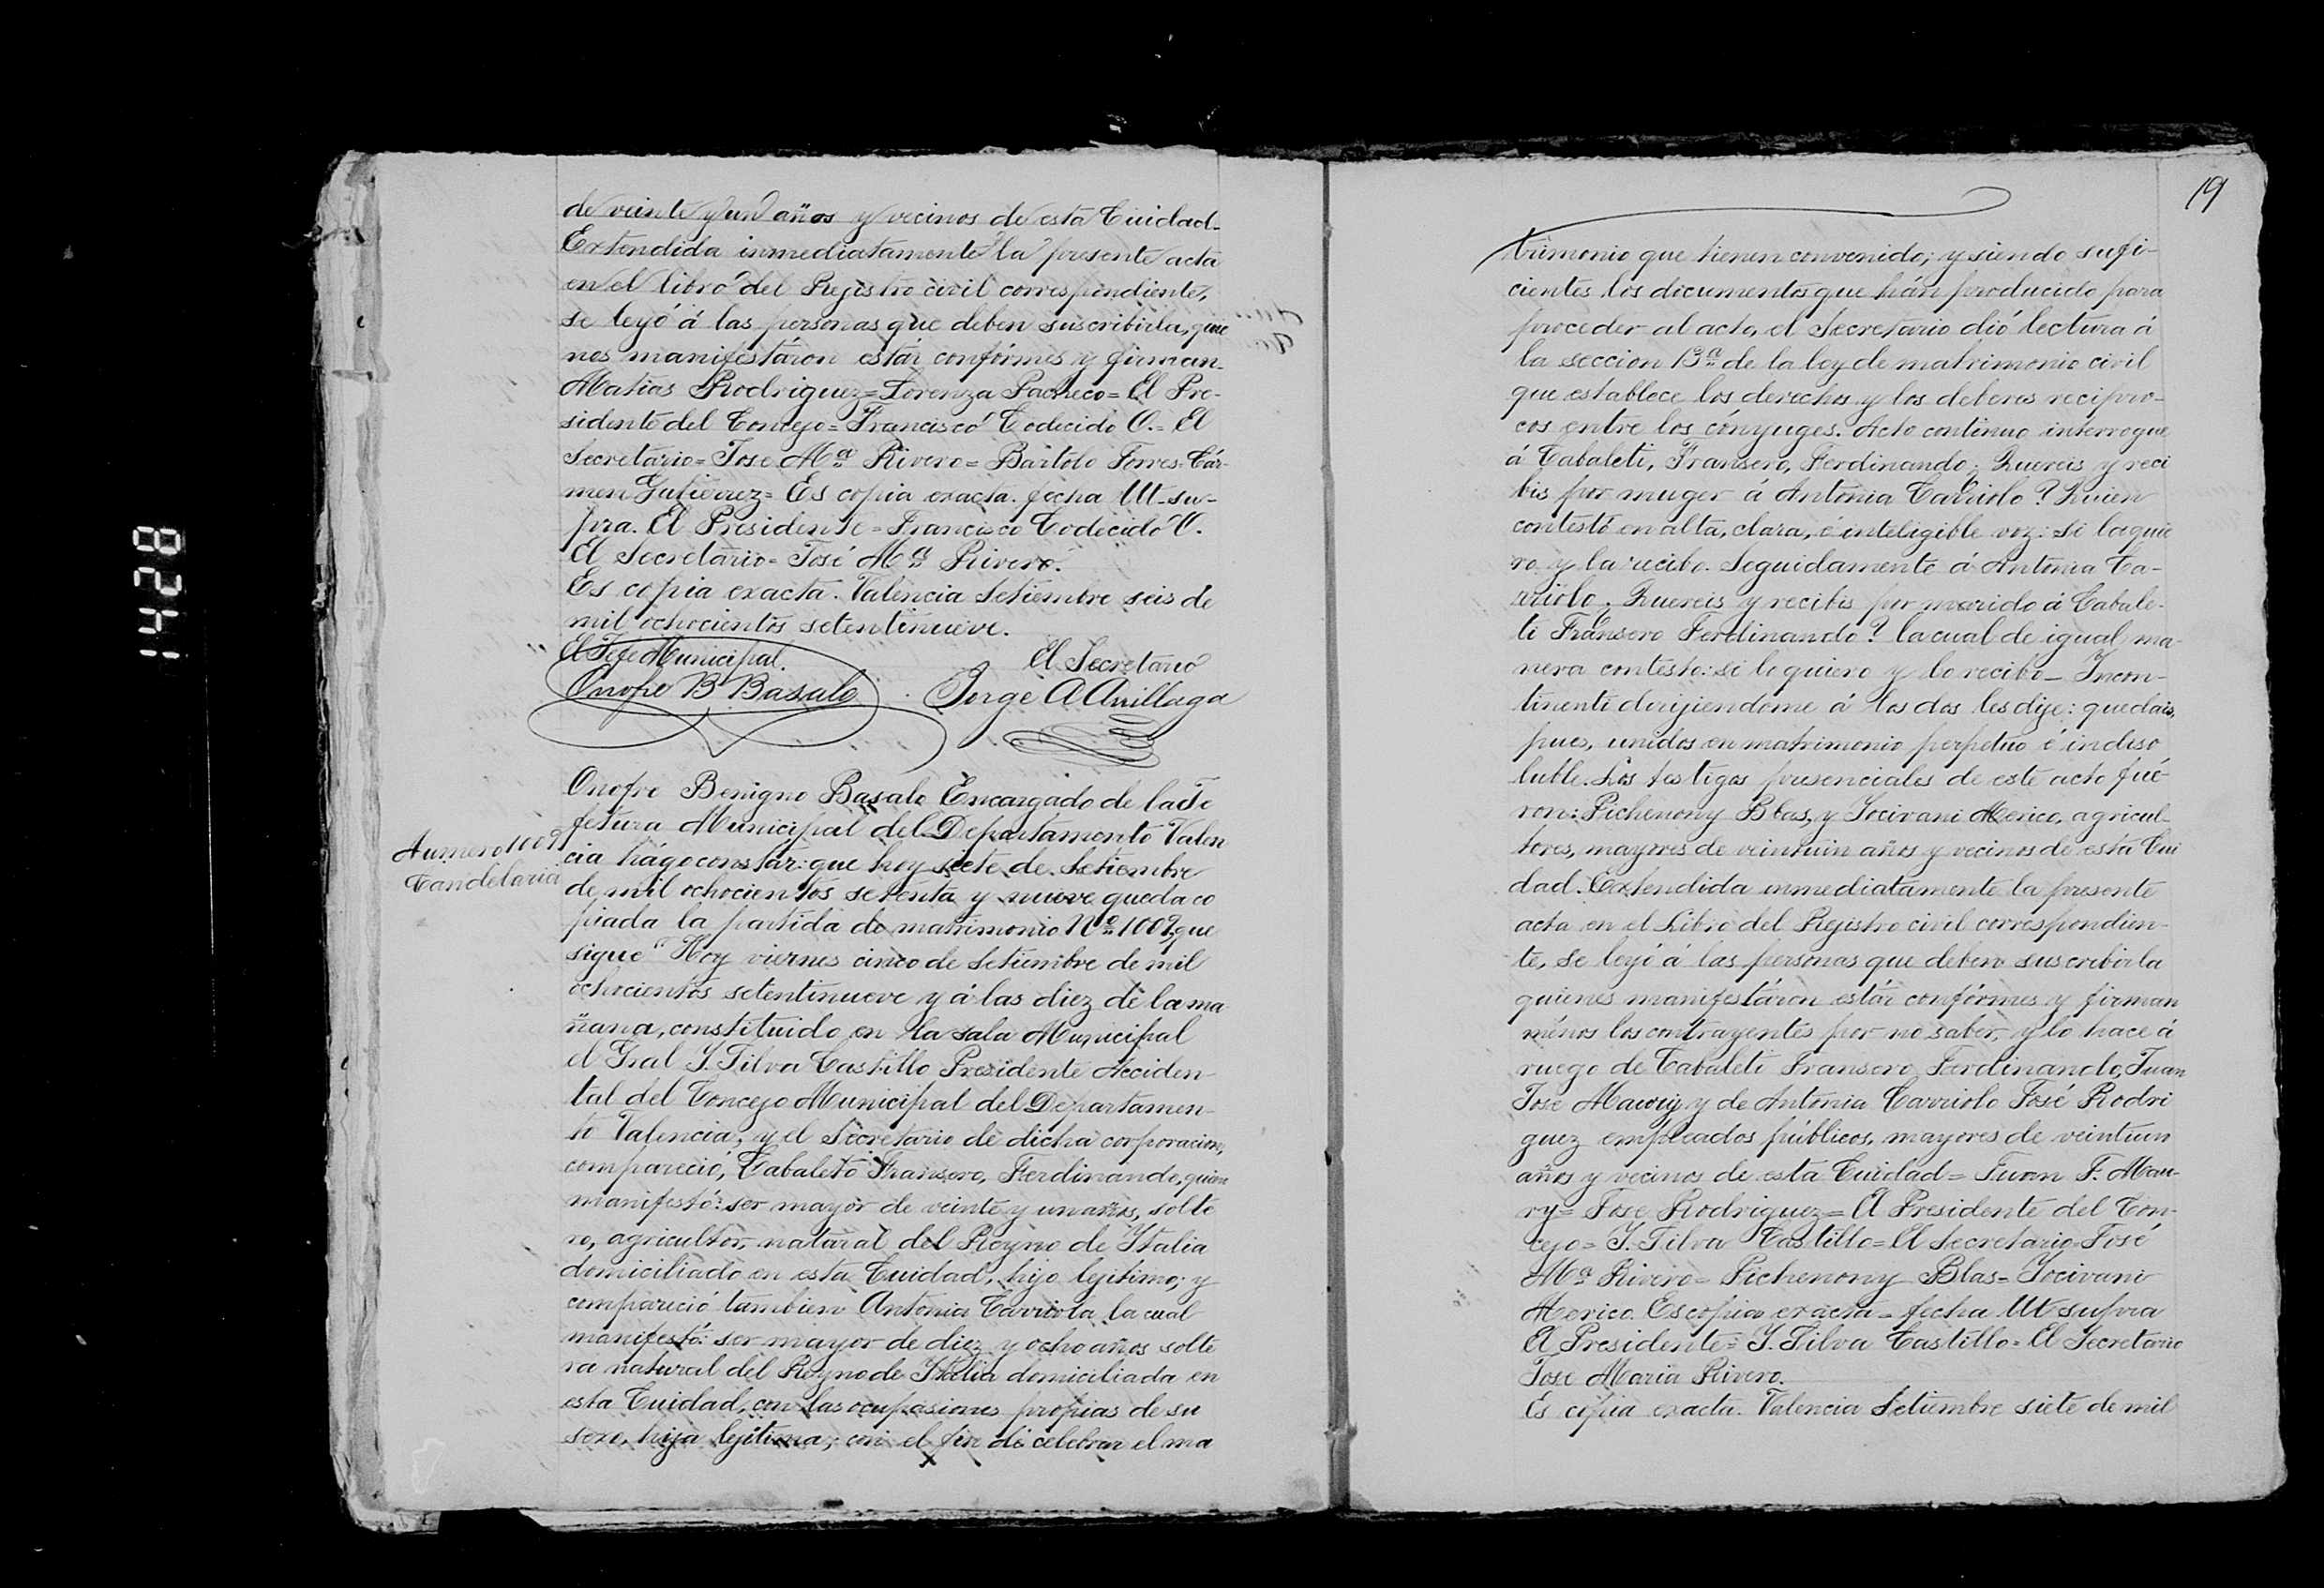 1428
de veinte y un años y vecinos de esta Ciudad.
Extendida inmediatamente la presente acta
en el libro del Rejistro civil correspindiente,
se leyó á las personas que deben suscribirla, quie
nes manifestáron estár confórmes y firman.
Matias Rodriguez= Lorenza Pacheco= El Pre-
sidente del Concejo= Francisco Codecido O.= El
Secretario= Jose Mª Rivero= Bártolo Torres= Cár-
men Gutierrez= Es copia exacta. fecha Ut-su-
pra. El Presidente= Francisco Codecido O.
El Secretario= José Mª Rivero.
Es copia exacta. Valencia Setiembre seis de
mil ochocientos setentinueve.
El Jefe Municipal. El Secretario
Onofre B Basalo Jorge A
Numero 1009
Candelaria
Onofre Benigno Basalo Encargado de la Je
fetura Municipal del Departamento Valen
cia hágo constar: que hoy siete de Setiembre
de mil ochocientos setenta y nueve queda co
piada la partida de matrimonio Nº 1009, que
sigue "Hoy viernes cinco de Setiembre de mil
ochocientos setentinueve y á las diez de la ma
ñana, constituido en la sala Municipal
el Gral J. Silva Castillo Presidente Acciden-
tal del Concejo Municipal del Departamen-
to Valencia, y el Secretario de dicha corporacion,
compareció, Cabaleto Fransero, Ferdinando, quien
manifestó: ser mayor de veinte y un años, solte
ro, agricultor, natural del Reyno de Ytalia
domiciliado en esta Cuidad, hijo lejitimo; y
compareció tambien Antonia Carriola la cual
manifestó: ser mayor de diez y ocho años solte
ra natural del Reyno de Ytalia domiciliada en
esta Cuidad, con las ocupasiones propias de su
sexo, hija lejitima; con el fin de celebrar el ma
19
trimonio que tienen convenido; y siendo sufi-
cientes los documentos que hán producido para
proceder al acto, el Secretario dió lectura á
la seccion 13ª de la ley de matrimonio civil
que establece los derechos y los deberes recipro-
cos entre los cónyuges. Acto continuo interrogue
á Cabaleti, Fransero, Ferdinando. Quereis y reci
bis por muger á Antonia Carriolo? Quien
contestó en alta, clara, é inteligible voz: si la quie
ro y la recibo. Seguidamente á Antonia Ca-
rriolo. Quereis y recibis por marido á Cabale-
ti Fransero Ferdinando? la cual de igual ma-
nera contesto: si lo quiero y lo recibo_ Incon-
tinenti dirijiendome á los dos les dije: quedais,
pues, unidos en matrimonio perpetuo é indiso
luble. Los testigos presenciales de este acto fué-
ron: Pichenony Blas, y Jocivani Merico, agricul-
tores, mayores de veintiun años y vecinos de esta Cui
dad. Extendida inmediatamente la presente
acta en el Libro del Rejistro civil correspondien-
te, se leyó á las personas que deben suscribirla
quienes manifestáron estár confórmes y firman
ménos los contrayentes por no saber, y lo hace á
ruego de Cabaleti Fransero Ferdinando, Juan
Jose Maury y de Antonia Carriolo José Rodri
guez empleados públicos, mayores de veintiun
años y vecinos de esta Cuidad= Juan J. Mau-
ry= Jose Rodriguez= El Presidente del Con-
cejo= J. Silva Castillo= El Secretario= José
Mª Rivero= Pichenony Blas= Jocivani
Merico. Es copia exacta= fecha Ut supra
El Presidente= J. Silva Castillo= El Secretario
Jose Maria Rivero.
Es copia exacta. Valencia Setiembre siete de mil